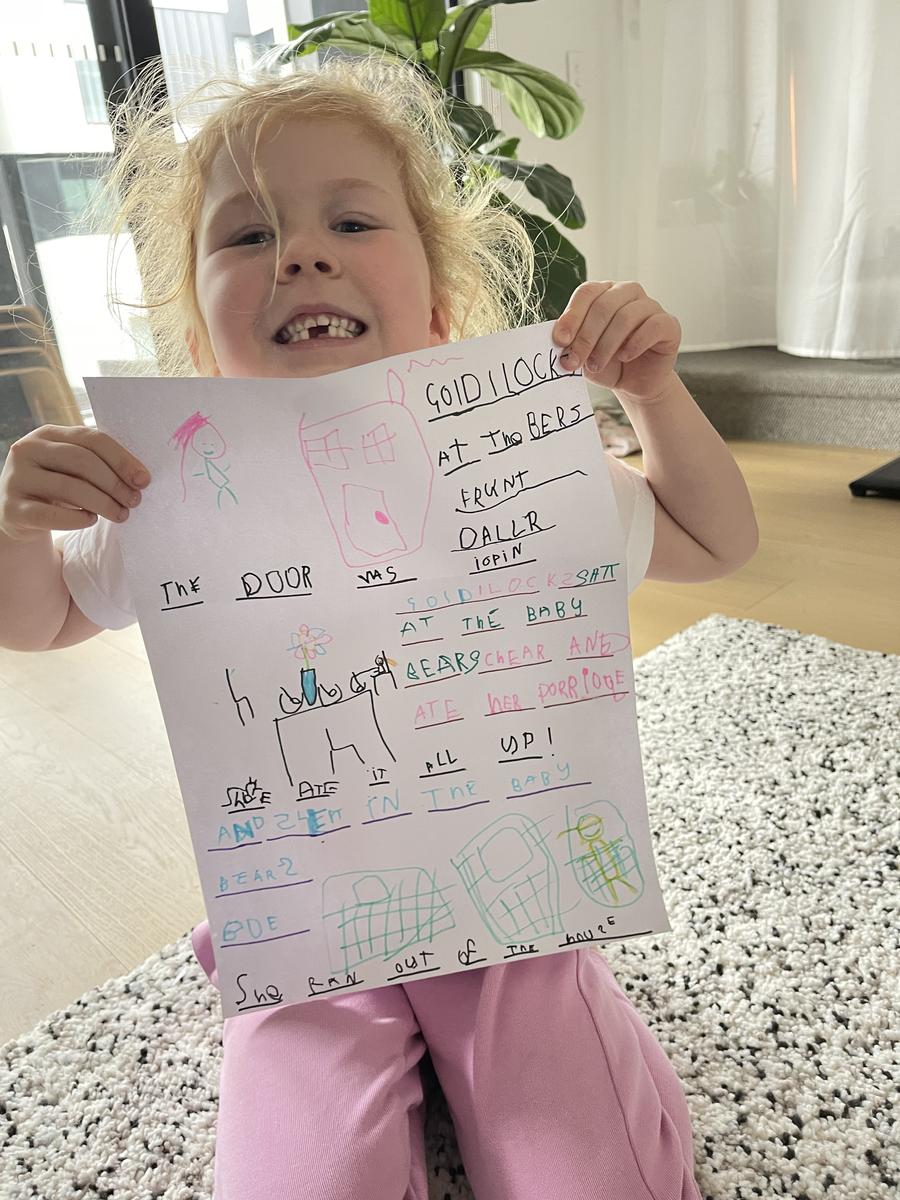 GOlDILOCKS
AT The BERS
FRUNT
DALLR
The DOOR WAS
IOPIN
GOlDILOCKS SATT
AT ThE BABY
BEARS ChEAR AND
ATE hER PORRIDGE
ShE ATE iT ALL UP!
AND SLEPT iN ThE BABY
BEARS
BDE
She RAN OUT OF ThE hOUSE